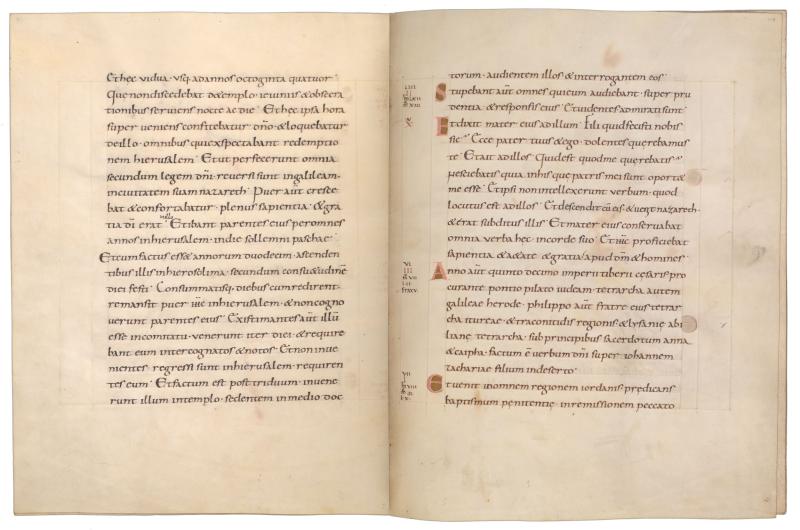 Et hec vidua · usq; ad annos octoginta quatuor ·
Que non discedebat de templo · ieiuniis & obsecra
tionibus serviens nocte ac die · Et hec ipsa hora
super veniens confitebatur dño · & loquebatur
de illo · omnibus qui expectabant redemptio
nem hierusalem · Et ut perfecerunt omnia
secundum legem dñi · reversi sunt in galileam ·
in civitatem suam nazareth · Puer aut̃ cresce
bat & confortabatur · plenus sapientia · & gra
tia dī erat in illo · Et ibant parentes eius per omnes
annos in hierusalem · in die sollemni paschae ·
Et cum factus esset annorum duodecim · ascenden
tibus illis in hierosolima · secundum consu&udinē
diei festi · Consummatisq; diebus cum redirent ·
remansit puer iħc in hierusalem · & non cogno
verunt parentes eius · Existimantes aut̃ illū
esse in comitatu · venerunt iter diei · & require
bant eum inter cognatos & notos · Et non inve
nientes · regressi sunt in hierusalem · requiren
tes eum · Et factum est post triduum · invene
runt illum in templo · sedentem in medio doc
torum · audientem illos & interrogantem eos ·
Stupebant aut̃ omnes qui eum audiebant · super pru
dentia & responsis eius · Et videntes admirati sunt ·
Et dixit mater eius ad illum · Fili quid fecisti nobis
sic · Ecce pater tuus & ego · dolentes querebamus
te · Et ait ad illos · Quid est quod me querebatis ·
Nesciebatis quia in his que patris mei sunt · oport&
me esse · Et ipsi non intellexerunt verbum · quod
locutus est ad illos · Et descendit cū eis · & venit nazareth ·
& erat subditus illis · Et mater eius conservabat
omnia verba hęc · in corde suo · Et iħc proficiebat
sapientia · & &ate · & gratia / apud dm̄ & homines ·
Anno aut̃ quinto decimo imperii tiberii cęsaris · pro
curante pontio pilato iudeam · tetrarcha autem
galileae herode · philippo aut̃ fratre eius tetrar
cha itureae · & traconitidis regionis · & lysanię abi
lianę tetrarcha · sub principibus sacerdotum anna
& caipha · factum ē verbum dm̄i super iohannem
zachariae filium in deserto ·
Et venit in omnem regionem iordanis · prędicans
baptismum pęnitentię · in remissionem peccato